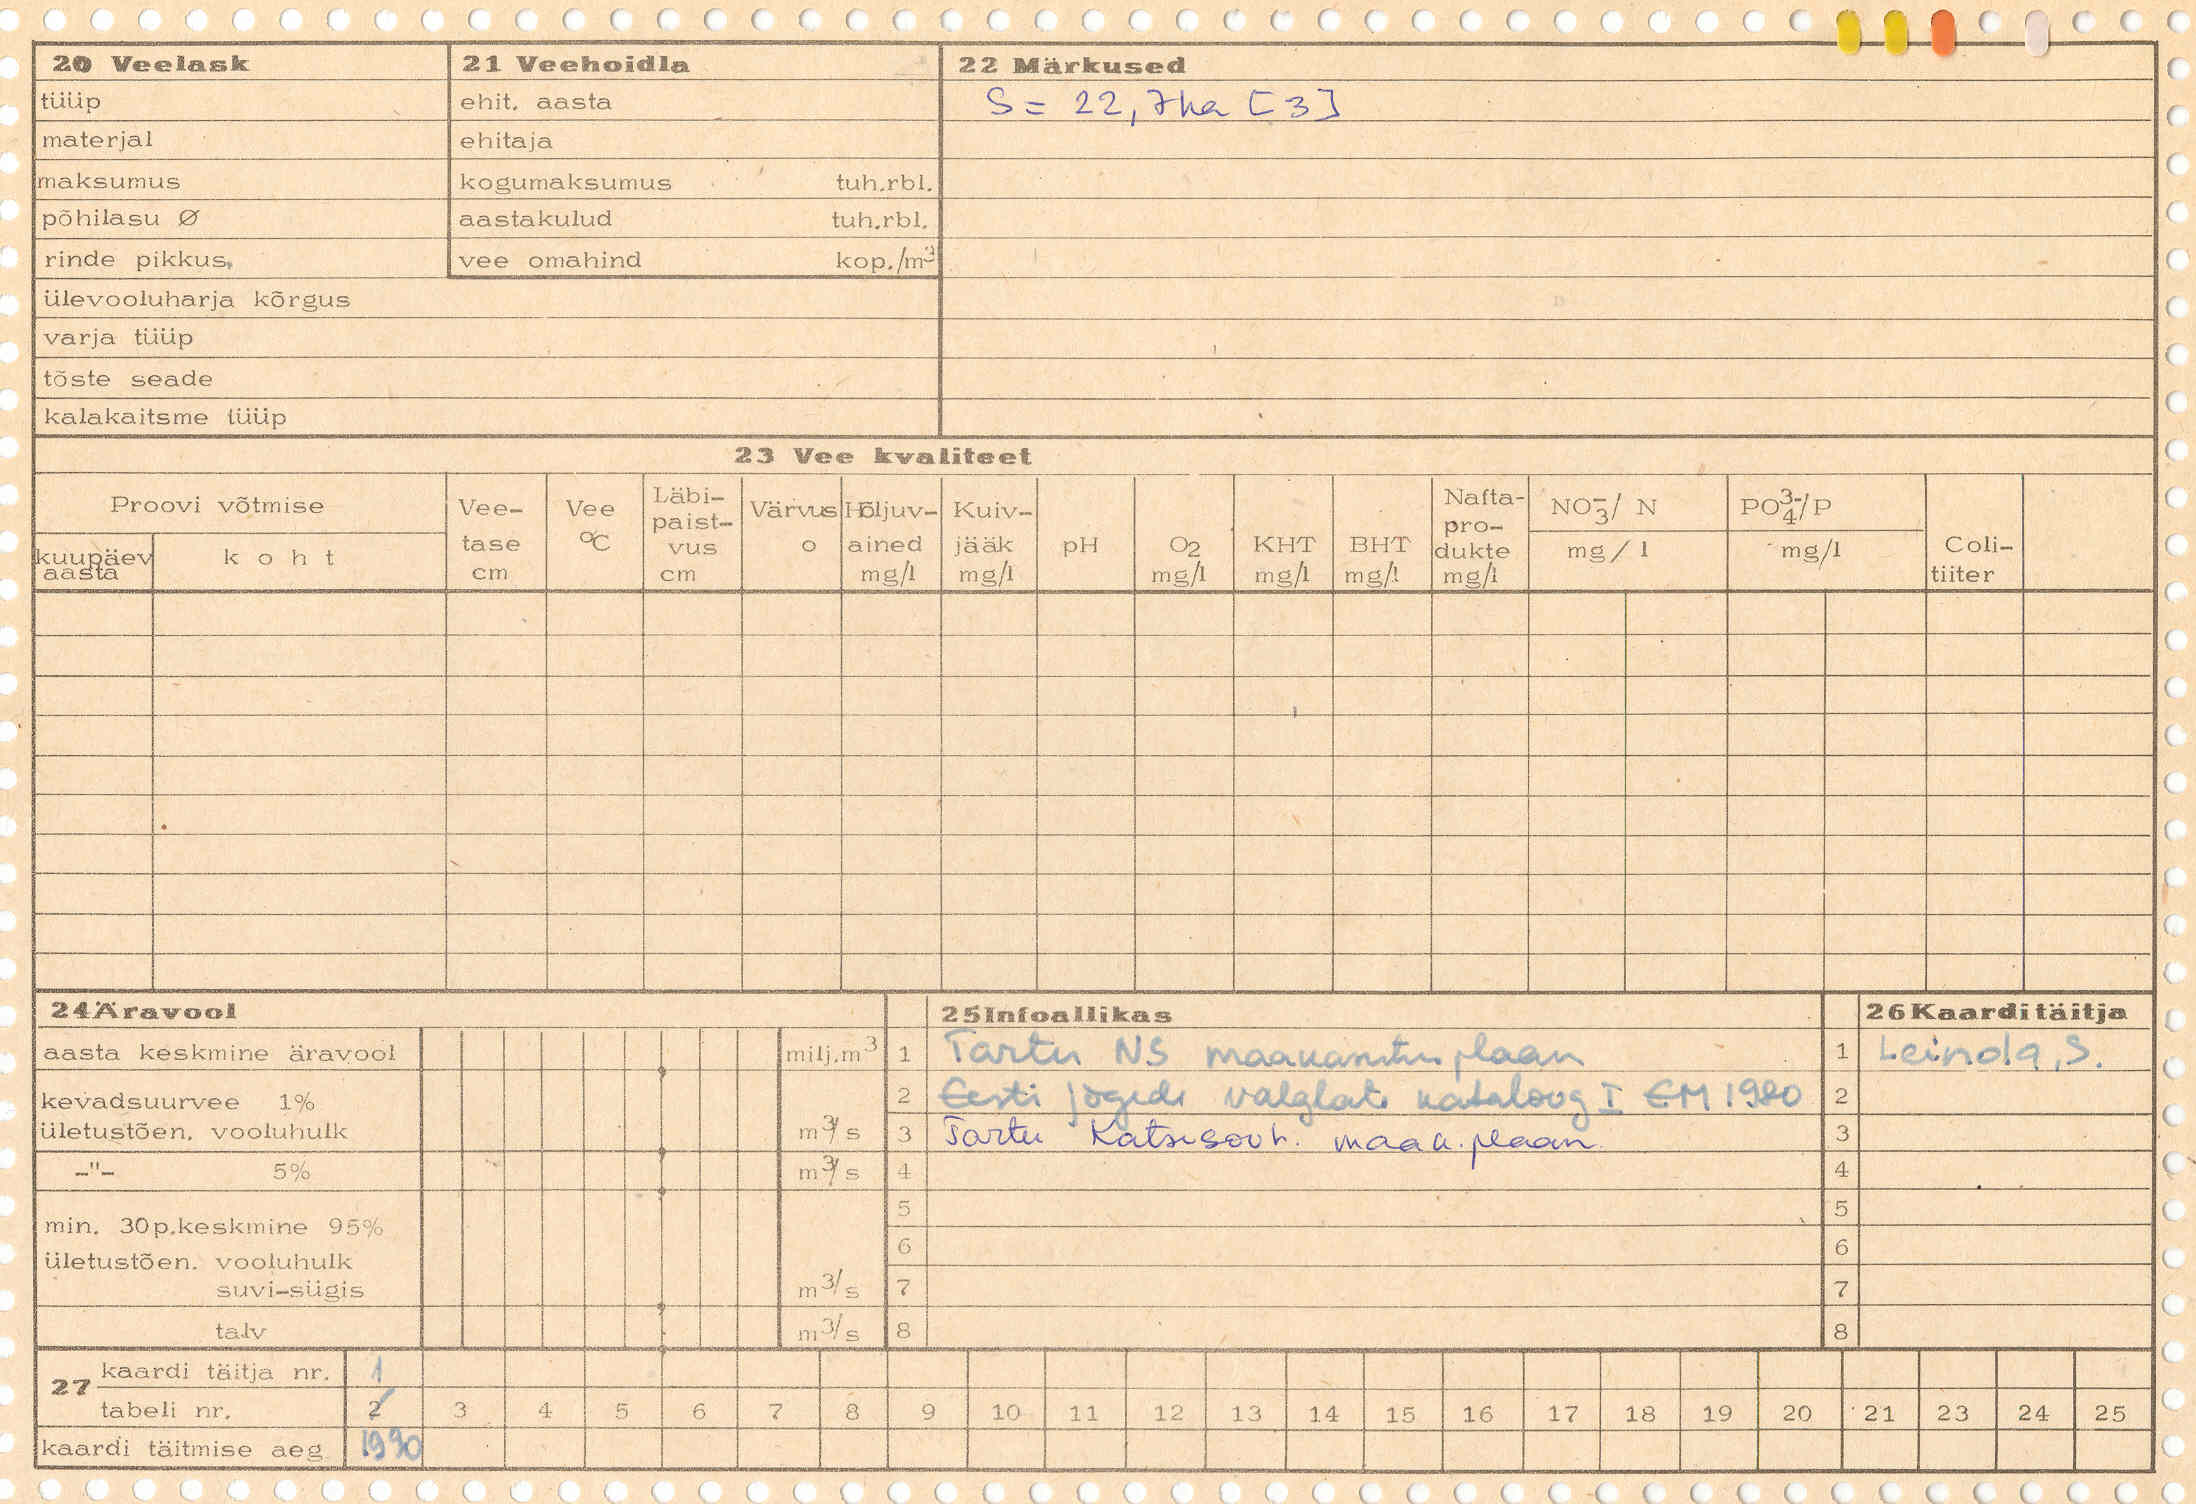 20 Veelask
tüüp
materjal
maksumus
põhilasu Ø
rinde pikkus
ülevooluharja kõrgus
varja tüüp
tõste seade
kalakaitsme tüüp
21 Veehoidla
ehit. aasta
ehitaja
kogumaksumus tuh.rbl.
aastakulud tuh.rbl.
vee omahind kop./m³
22 Märkused
S = 22,7ha [3]
23 Vee kvaliteet
Proovi võtmise
kuupäev aasta
koht
Vee-tase cm
Vee °C
Läbi-paist-vus cm
Värvus o
Hõljuv-ained mg/l
Kuiv-jääk mg/l
pH
O₂ mg/l
KHT mg/l
BHT mg/l
Nafta-pro-dukte mg/l
NO₃⁻/ N mg/l
PO₄³⁻/P mg/l
Coli-tiiter
24 Äravool
aasta keskmine äravool milj.m³
kevadsuurvee 1%
ületustõen. vooluhulk m³/s
-"- 5% m³/s
min. 30p.keskmine 95%
ületustõen. vooluhulk
suvi-sügis m³/s
talv m³/s
25 Infoallikas
1 Tartu NS plaan
2 Eesti jõgede valglate kataloog I EM 1980
3 Tartu Katsesovh. maak.plaan.
4
5
6
7
8
26 Kaarditäitja
1 Leinola, S.
2
3
4
5
6
7
8
27
kaardi täitja nr. 1
tabeli nr. 2 3 4 5 6 7 8 9 10 11 12 13 14 15 16 17 18 19 20 21 23 24 25
kaardi täitmise aeg 1990